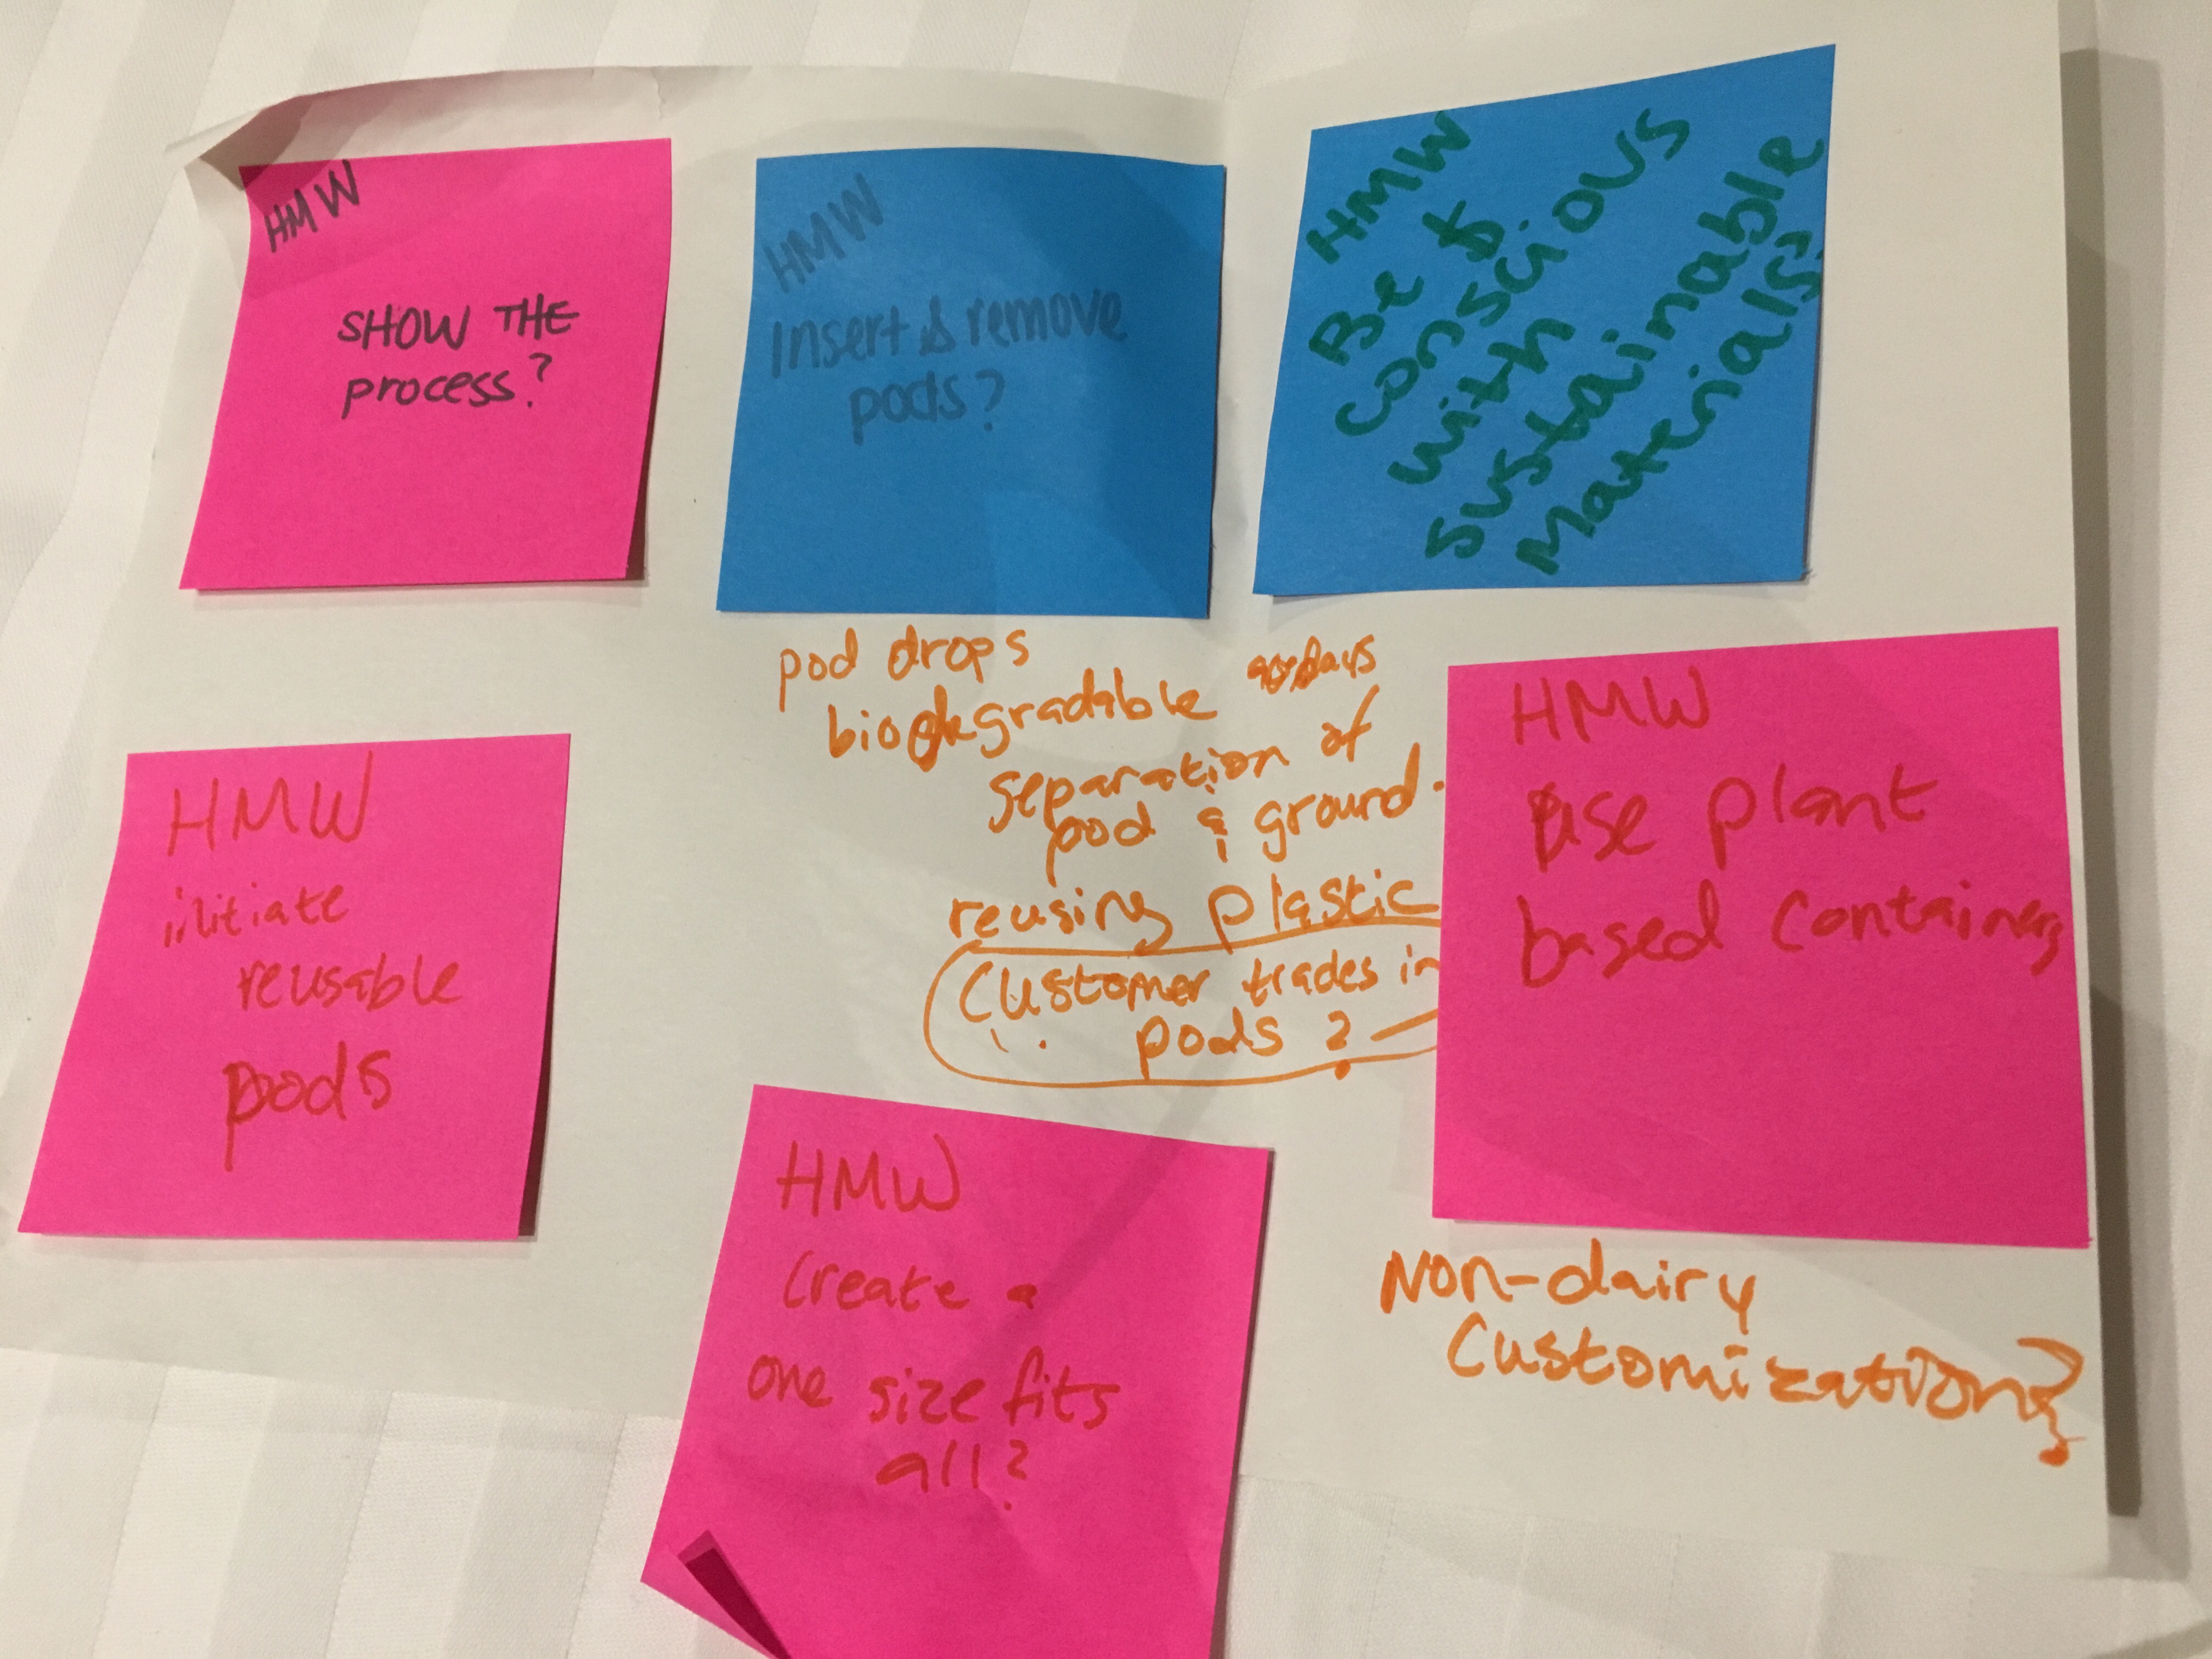 HMW
SHOW THE
process?
HMW
Insert & remove
pods?
HMW
Be
conscious
with
sustainable
Materials?
pod drops
biodegradable
separation of
pod & ground.
reusing plastic
Customer trades in
pods?
HMW
use plant
based containers
HMW
initiate
reusable
pods
HMW
Create a
one size fits
all?
Non-dairy
Customization?